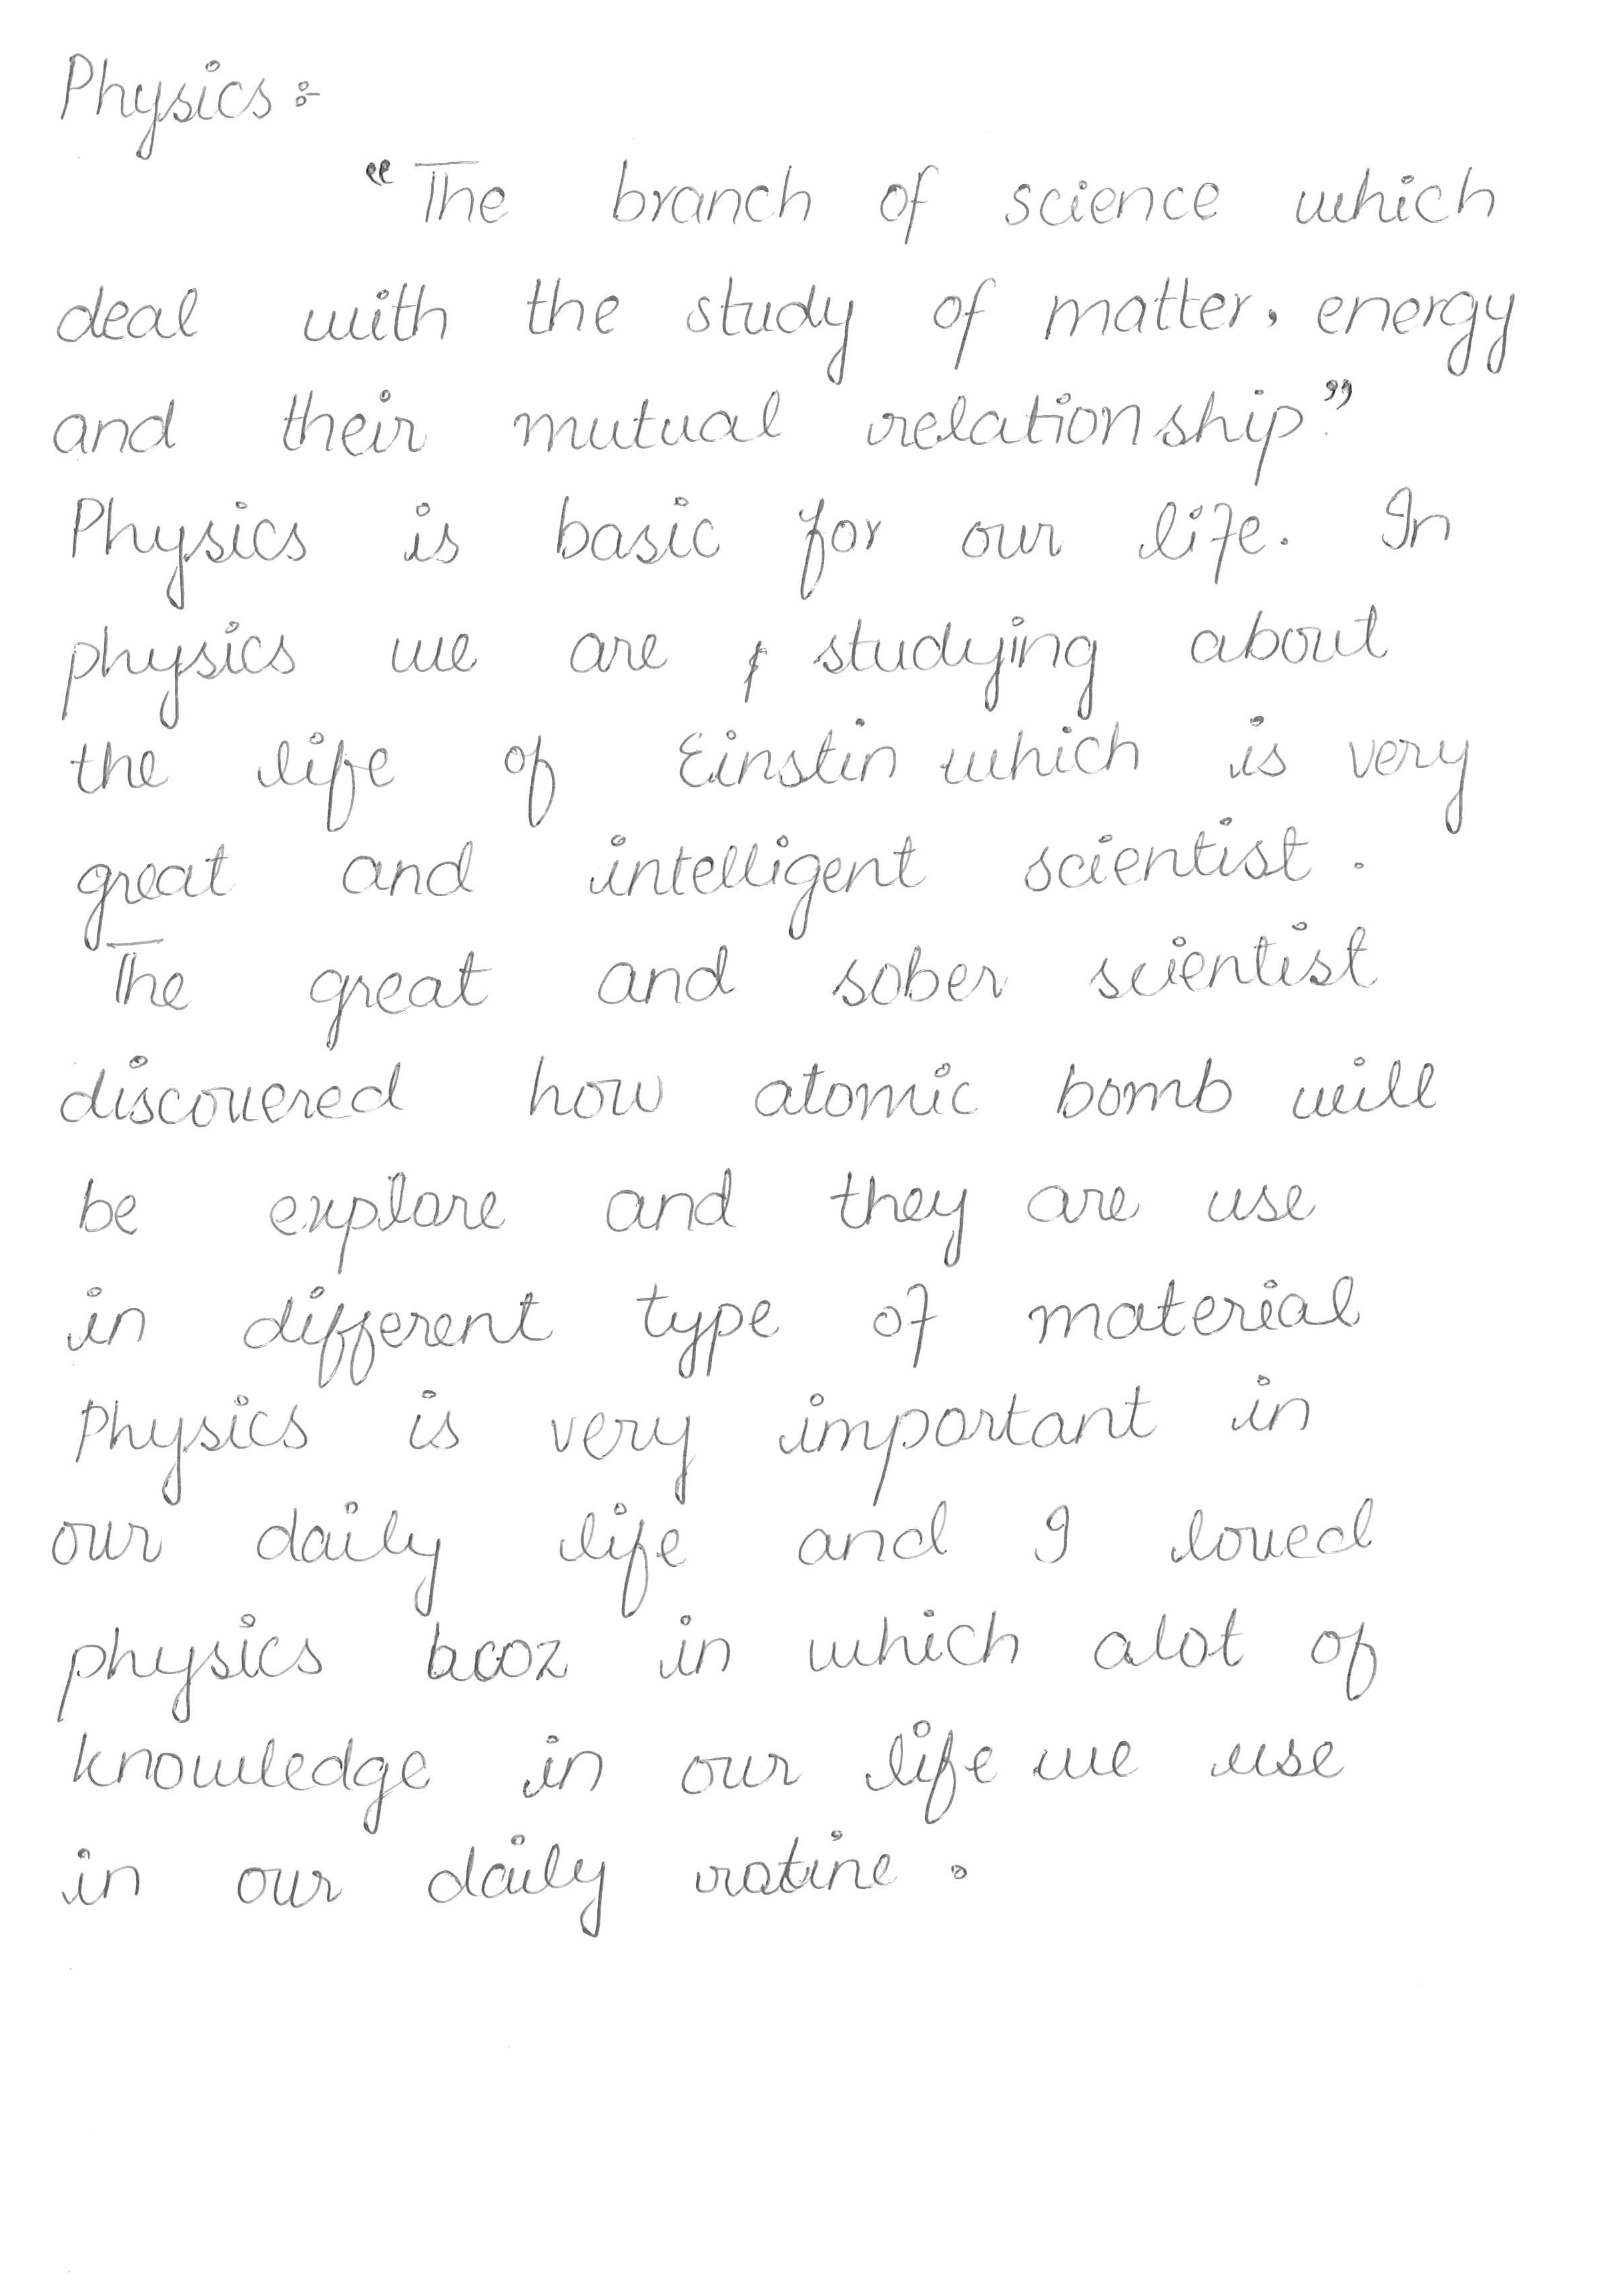 Physics :-
"The branch of science which
deal with the study of matter, energy
and their mutual relationship."
Physics is basic for our life. In
physics we are studying about
the life of Einstin which is very
great and intelligent scientist.
The great and sober scientist
discovered how atomic bomb will
be explore and they are use
in different type of material
Physics is very important in
our daily life and I loved
physics bcoz in which alot of
knowledge in our life we use
in our daily rotine.